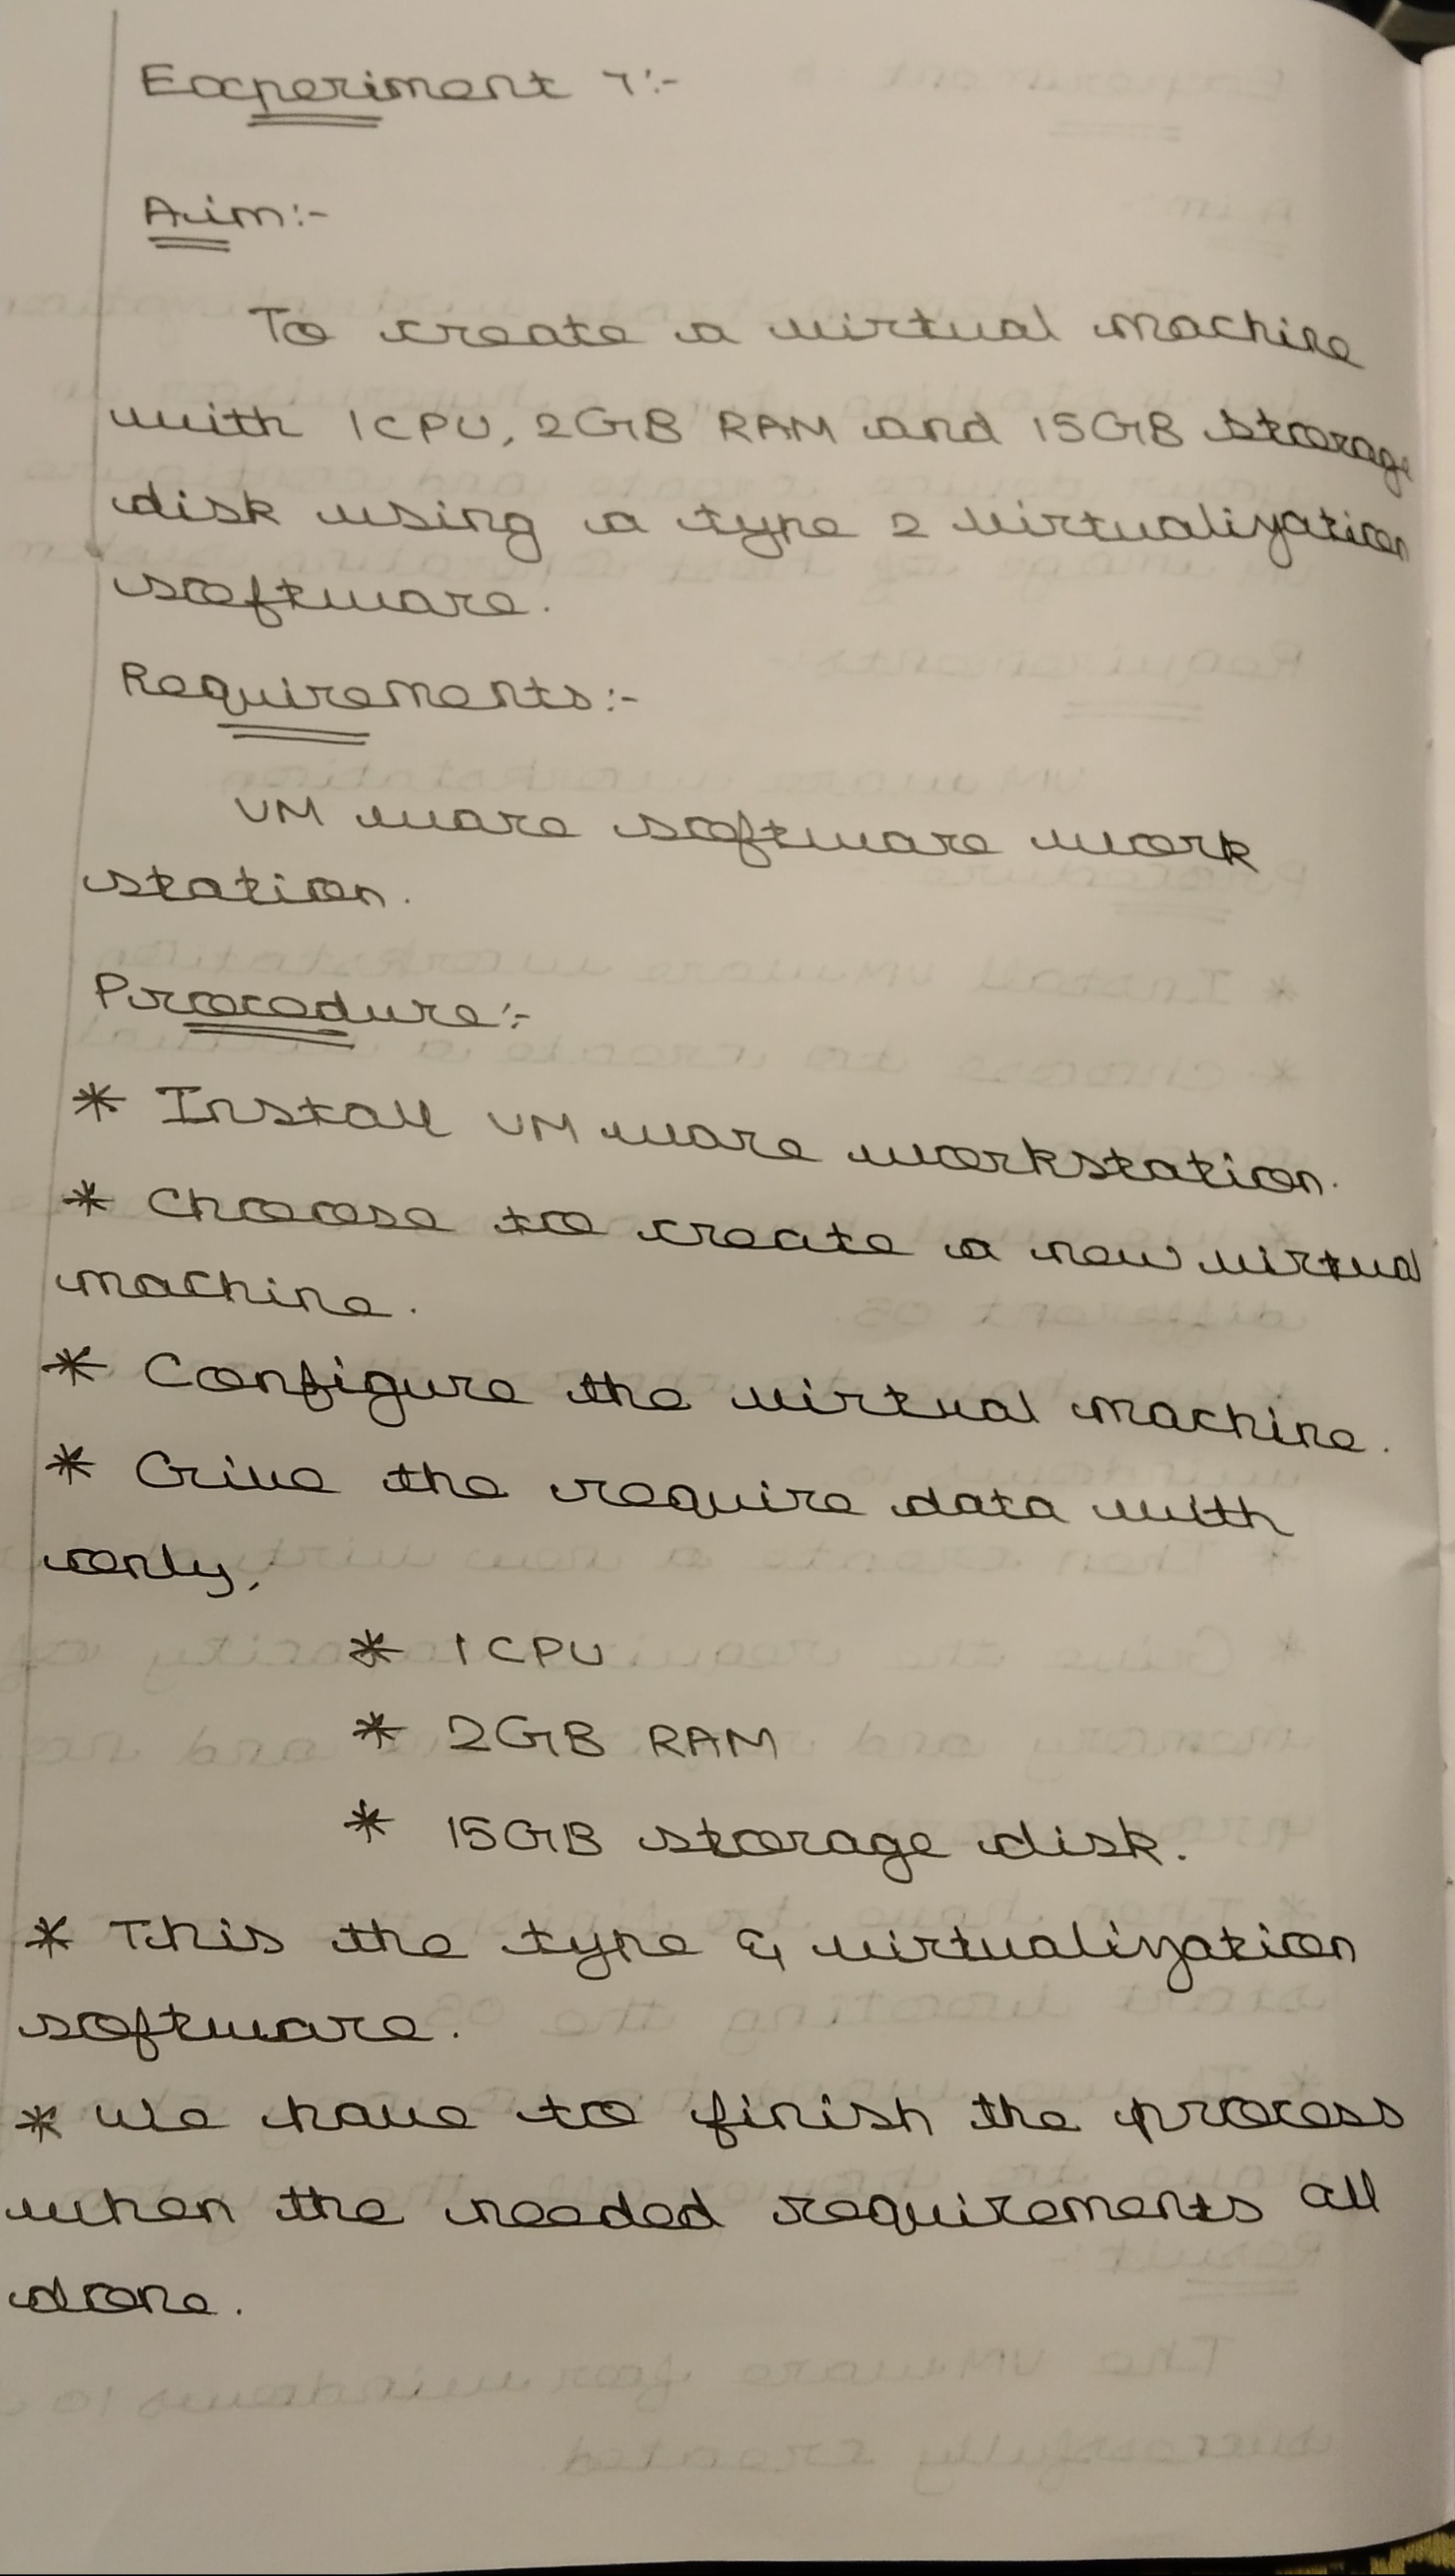 Experiment 7:-
Aim:-
To create a virtual machine
with 1CPU, 2GB RAM and 15GB storage
disk using a type 2 virtualization
software.
Requirements:-
VM ware software work
station.
Procedure:-
* Install VM ware workstation.
* Choose to create a new virtual
machine.
* Configure the virtual machine.
* Give the require data with
only,
* 1 CPU
* 2GB RAM
* 15GB storage disk.
* This the type & virtualization
software.
* We have to finish the process
when the needed requirements all
done.